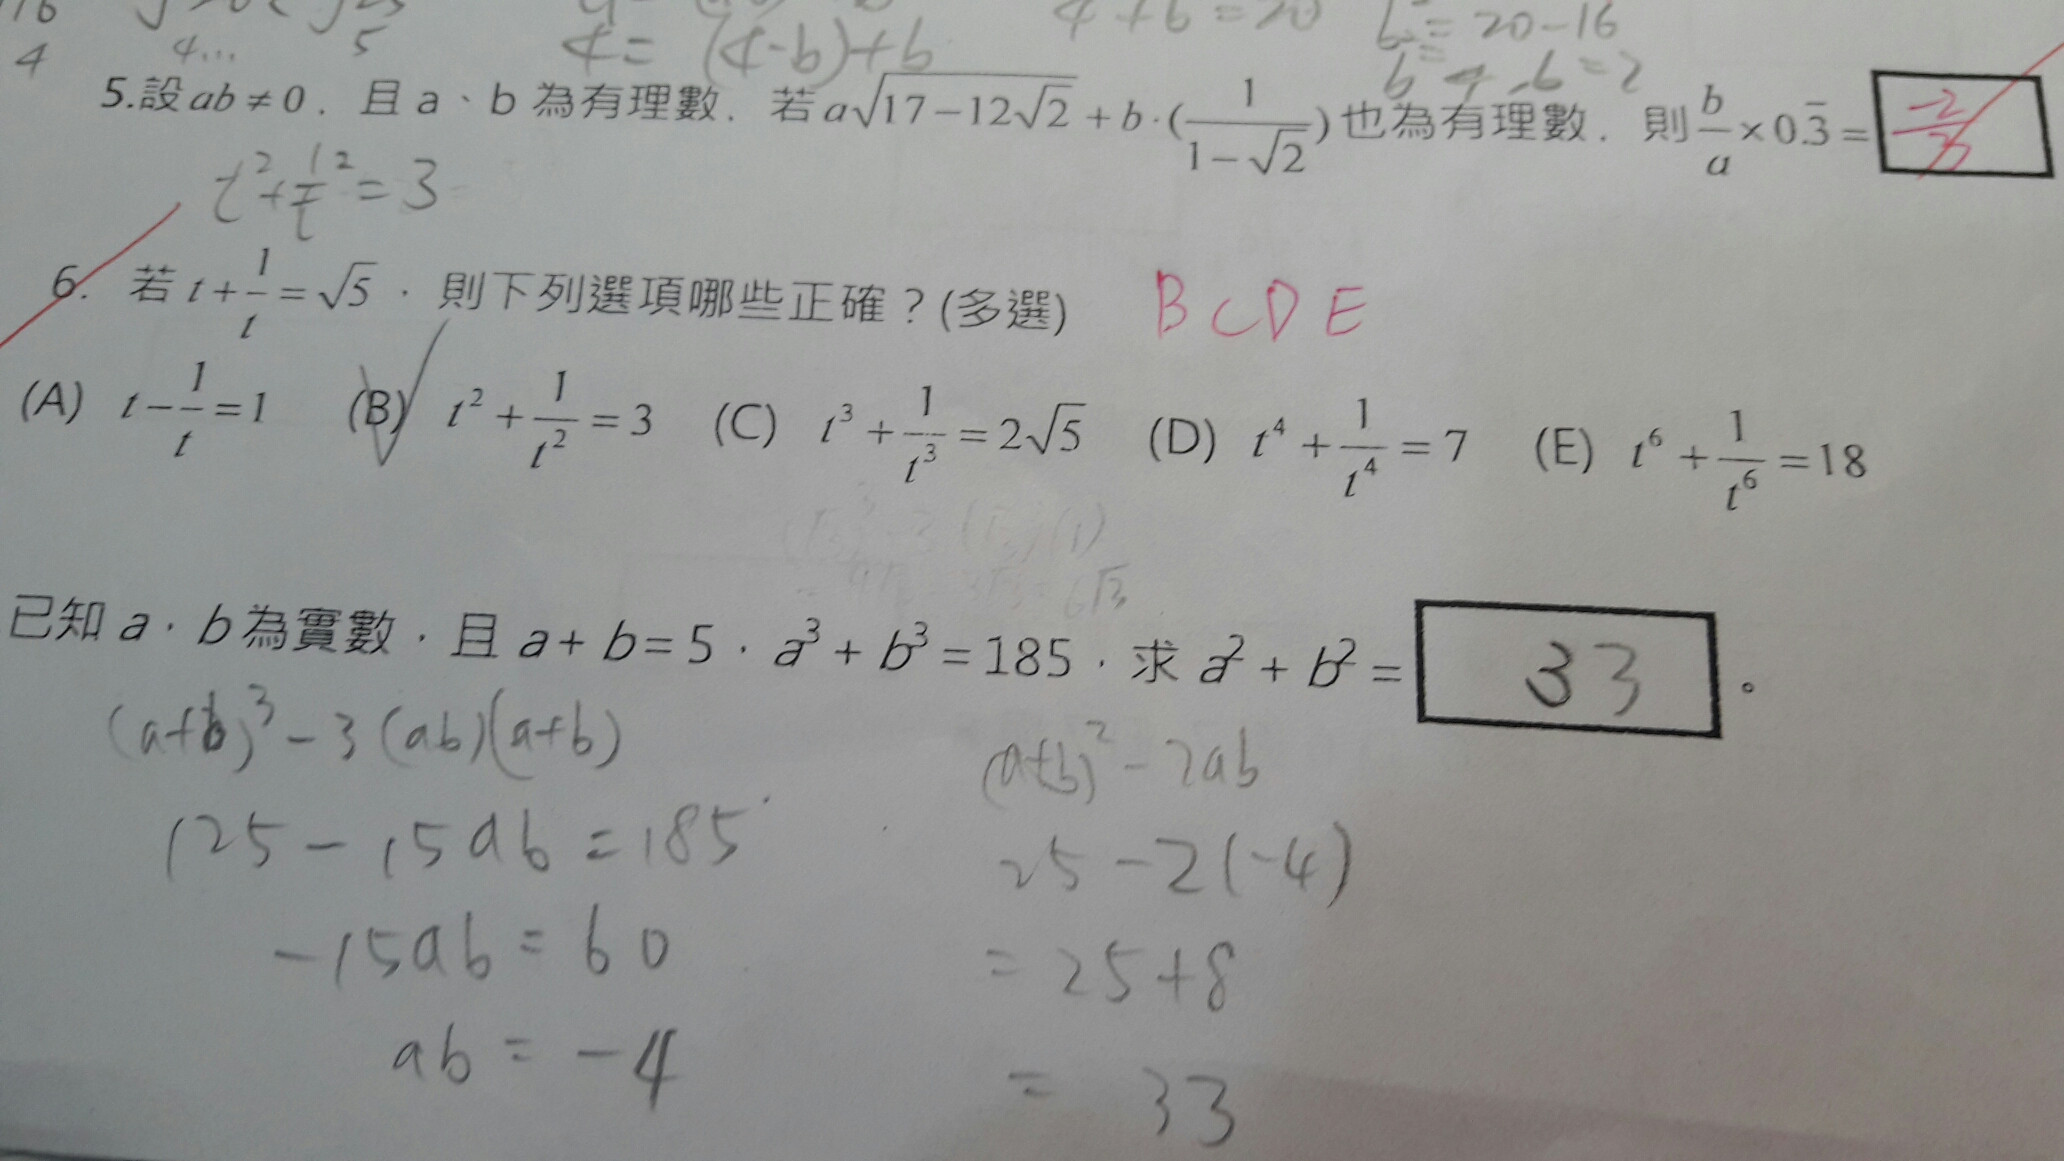 4... 5
4 = (4-b)+b
4+b=20
=20-16
b=2
5.設 ab≠0﹐且 a、b 為有理數﹐若 a√(17-12√2) + b·(1/(1-√2)) 也為有理數﹐則 b/a × 0.3̅ = -2/3
t²+1/t²=3
6. 若 t+1/t=√5﹐則下列選項哪些正確？(多選) BCDE
(A) t-1/t=1 (B) t²+1/t²=3 (C) t³+1/t³=2√5 (D) t⁴+1/t⁴=7 (E) t⁶+1/t⁶=18
已知 a﹐b 為實數﹐且 a+b=5﹐a³+b³=185﹐求 a²+b²= 33 。
(a+b)³-3(ab)(a+b)
(a+b)²-2ab
125-15ab=185
25-2(-4)
-15ab=60
=25+8
ab=-4
=33